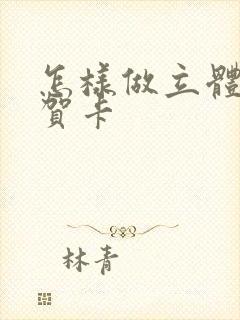 怎樣做立體
賀卡
林青